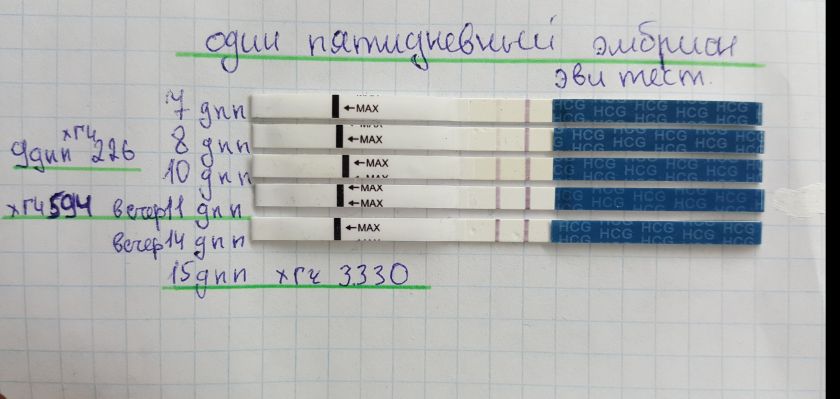 один пятидневный эмбрион
эви тест.
7 дпп ←MAX HCG HCG HCG HCG
8 дпп ←MAX HCG HCG HCG HCG
9дпп хгч 226
10 дпп ←MAX HCG HCG HCG HCG
хгч 594 вечер 11 дпп ←MAX HCG HCG HCG HCG
вечер 14 дпп ←MAX HCG HCG HCG HCG
15 дпп хгч 3330